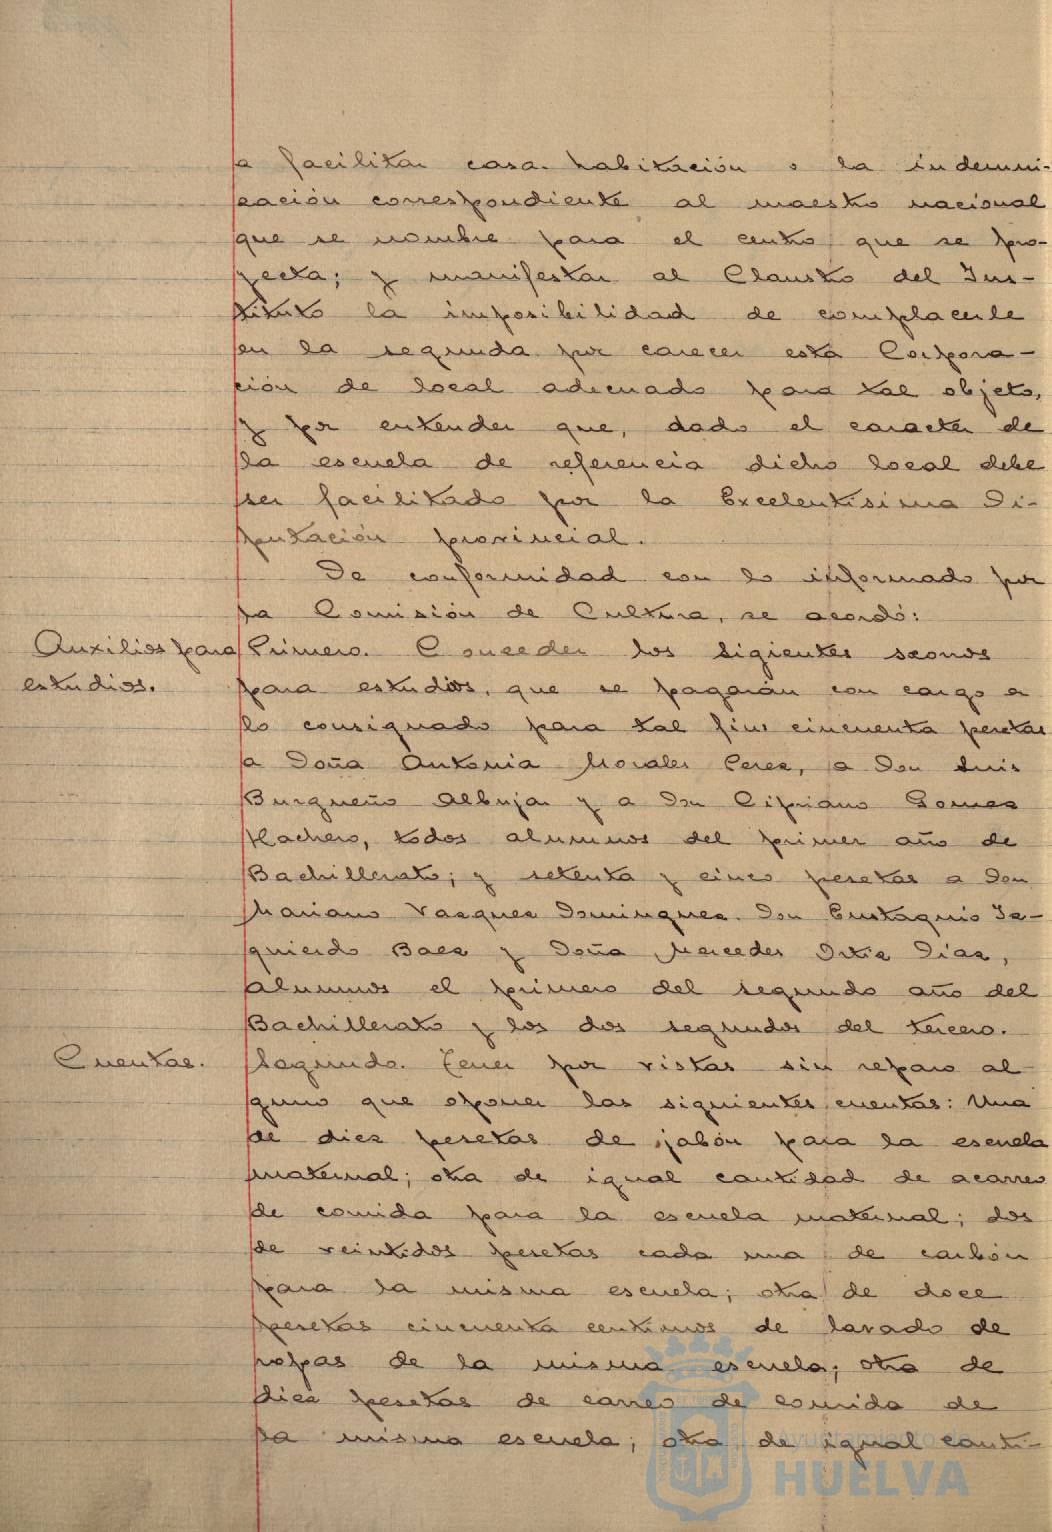 a facilitar casa-habitación o la indemni-
zación correspondiente al maestro nacional
que se nombre para el centro que se pro-
yecta; y manifestar al Claustro del Ins-
tituto la imposibilidad de complacerle
en la segunda por carecer esta Corpora-
ción de local adecuado para tal objeto,
y por entender que, dado el caracter de
la escuela de referencia dicho local debe
ser facilitado por la Excelentísima Di-
putación provincial.
De conformidad con lo informado por
la Comisión de Cultura, se acordó:
Auxilios para
estudios.
Primero. Conceder los sigientes
para estudios, que se pagarán con cargo a
lo consignado para tal fin: cincuenta pesetas
a Doña Antonia Morales Perez, a Don Luis
Burgueño Albujar y a Don Cipriano Gomez
Hachero, todos alumnos del primer año de
Bachillerato; y setenta y cinco pesetas a Don
Mariano Vazquez Dominguez. Don Eustaquio Iz-
quierdo Baez y Doña Mercedes Ortiz Díaz,
alumnos el primero del segundo año del
Bachillerato y los dos segundos del tercero.
Cuentas.
Segundo. Tener por vistas sin reparo al
guno que oponer las siguientes cuentas: Una
de diez pesetas de jabón para la escuela
maternal; otra de igual cantidad de acarreo
de comida para la escuela maternal; dos
de veintidos pesetas cada una de carbón
para la misma escuela; otra de doce
pesetas cincuenta centimos de lavado de
ropas de la misma escuela; otra de
diez pesetas de carreo de comida de
la misma escuela; otra de igual canti-
Ayuntamiento de
HUELVA